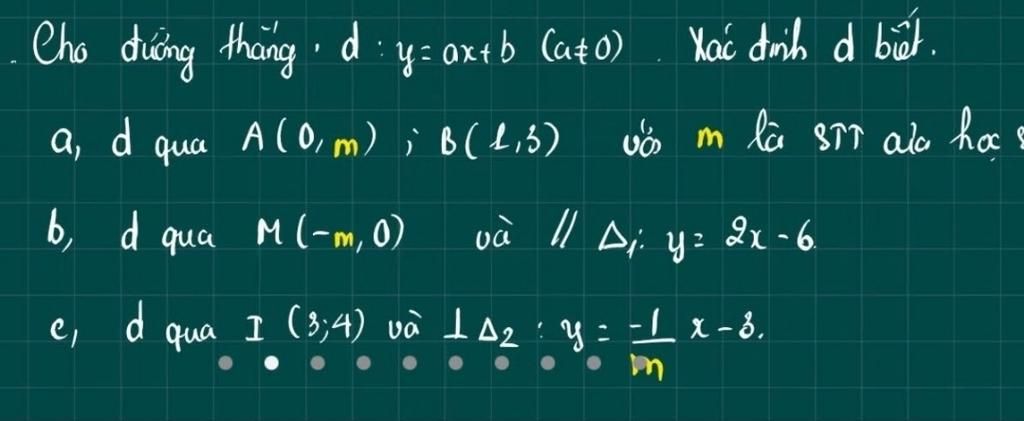 . Cho đường thẳng . d : y = ax + b (a ≠ 0) . Xác định d biết.
a, d qua A (0, m) ; B (1, 3) với m là STT của học s
b, d qua M (-m, 0) và // Δ₁: y = 2x - 6.
c, d qua I (3; 4) và ⊥ Δ₂ : y = -1/m x - 3.